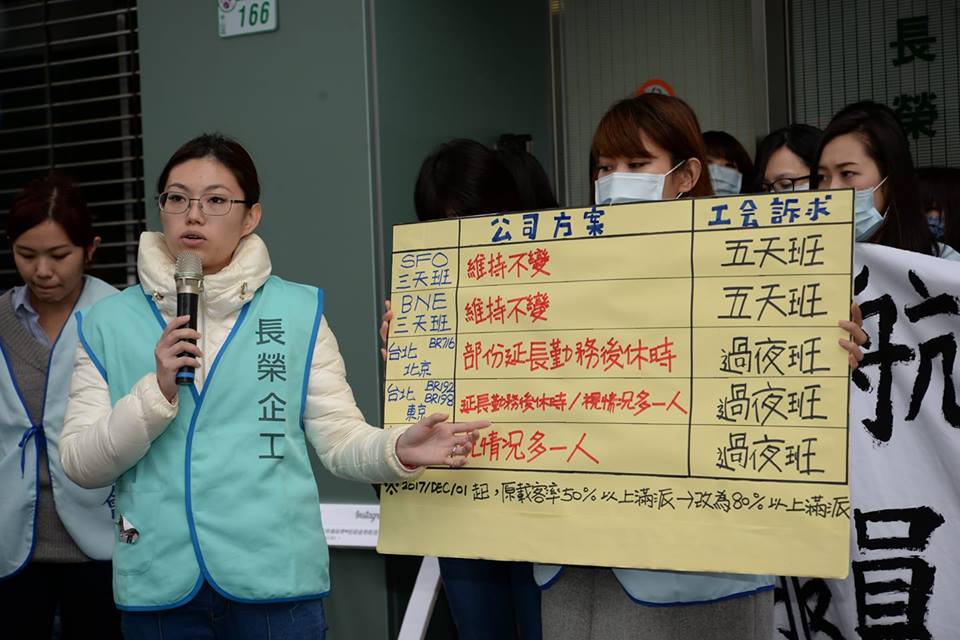 166
長榮
長榮企工
公司方案
工会訴求
SFO
三天班
維持不變
五天班
BNE
三天班
維持不變
五天班
台北 BR716
北京
部份延長勤務後休時
過夜班
台北 BR192
BR198
東京
延長勤務後休時/視情況多一人
過夜班
情況多一人
過夜班
※2017/DEC/01起,原載客率50%以上滿派→改為80%以上滿派
航
員
Instagram